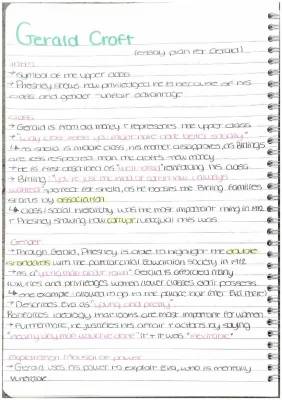 Gerald Croft
(essay plan for Gerald)
Intro
→ Symbol of the upper class
→ Priestley shows how privileged he is because of his
class and gender - unfair advantage
Class
→ Gerald is from old money & represents the upper class
↳ As Sheila is middle class, his mother disapproves, as Birlings
are less respected than the Crofts - new money
→ He is first described as "well-bred"
→ Birling "you're just the kind of son-in-law I always
wanted" perfect for Sheila, as he raises the Birling families
status by association
↳ class/social hierarchy was the most important thing in 1912
& Priestley showing how corrupt unequal this was
Gender
→ Through Gerald, Priestley is able to highlight the double
standards with the patriarchal Edwardian Society in 1912
→ As a "young man about town" Gerald is afforded many
luxuries and privileges women lower classes don't possess
↳ one example: allowed to go to the palace bar
→ Describes Eva as "young and pretty"
ideology that looks are most important for women
→ Furthermore, he justifies his affair & actions by saying
it was "inevitable"
of power
→ Gerald uses his power to exploit Eva, who is